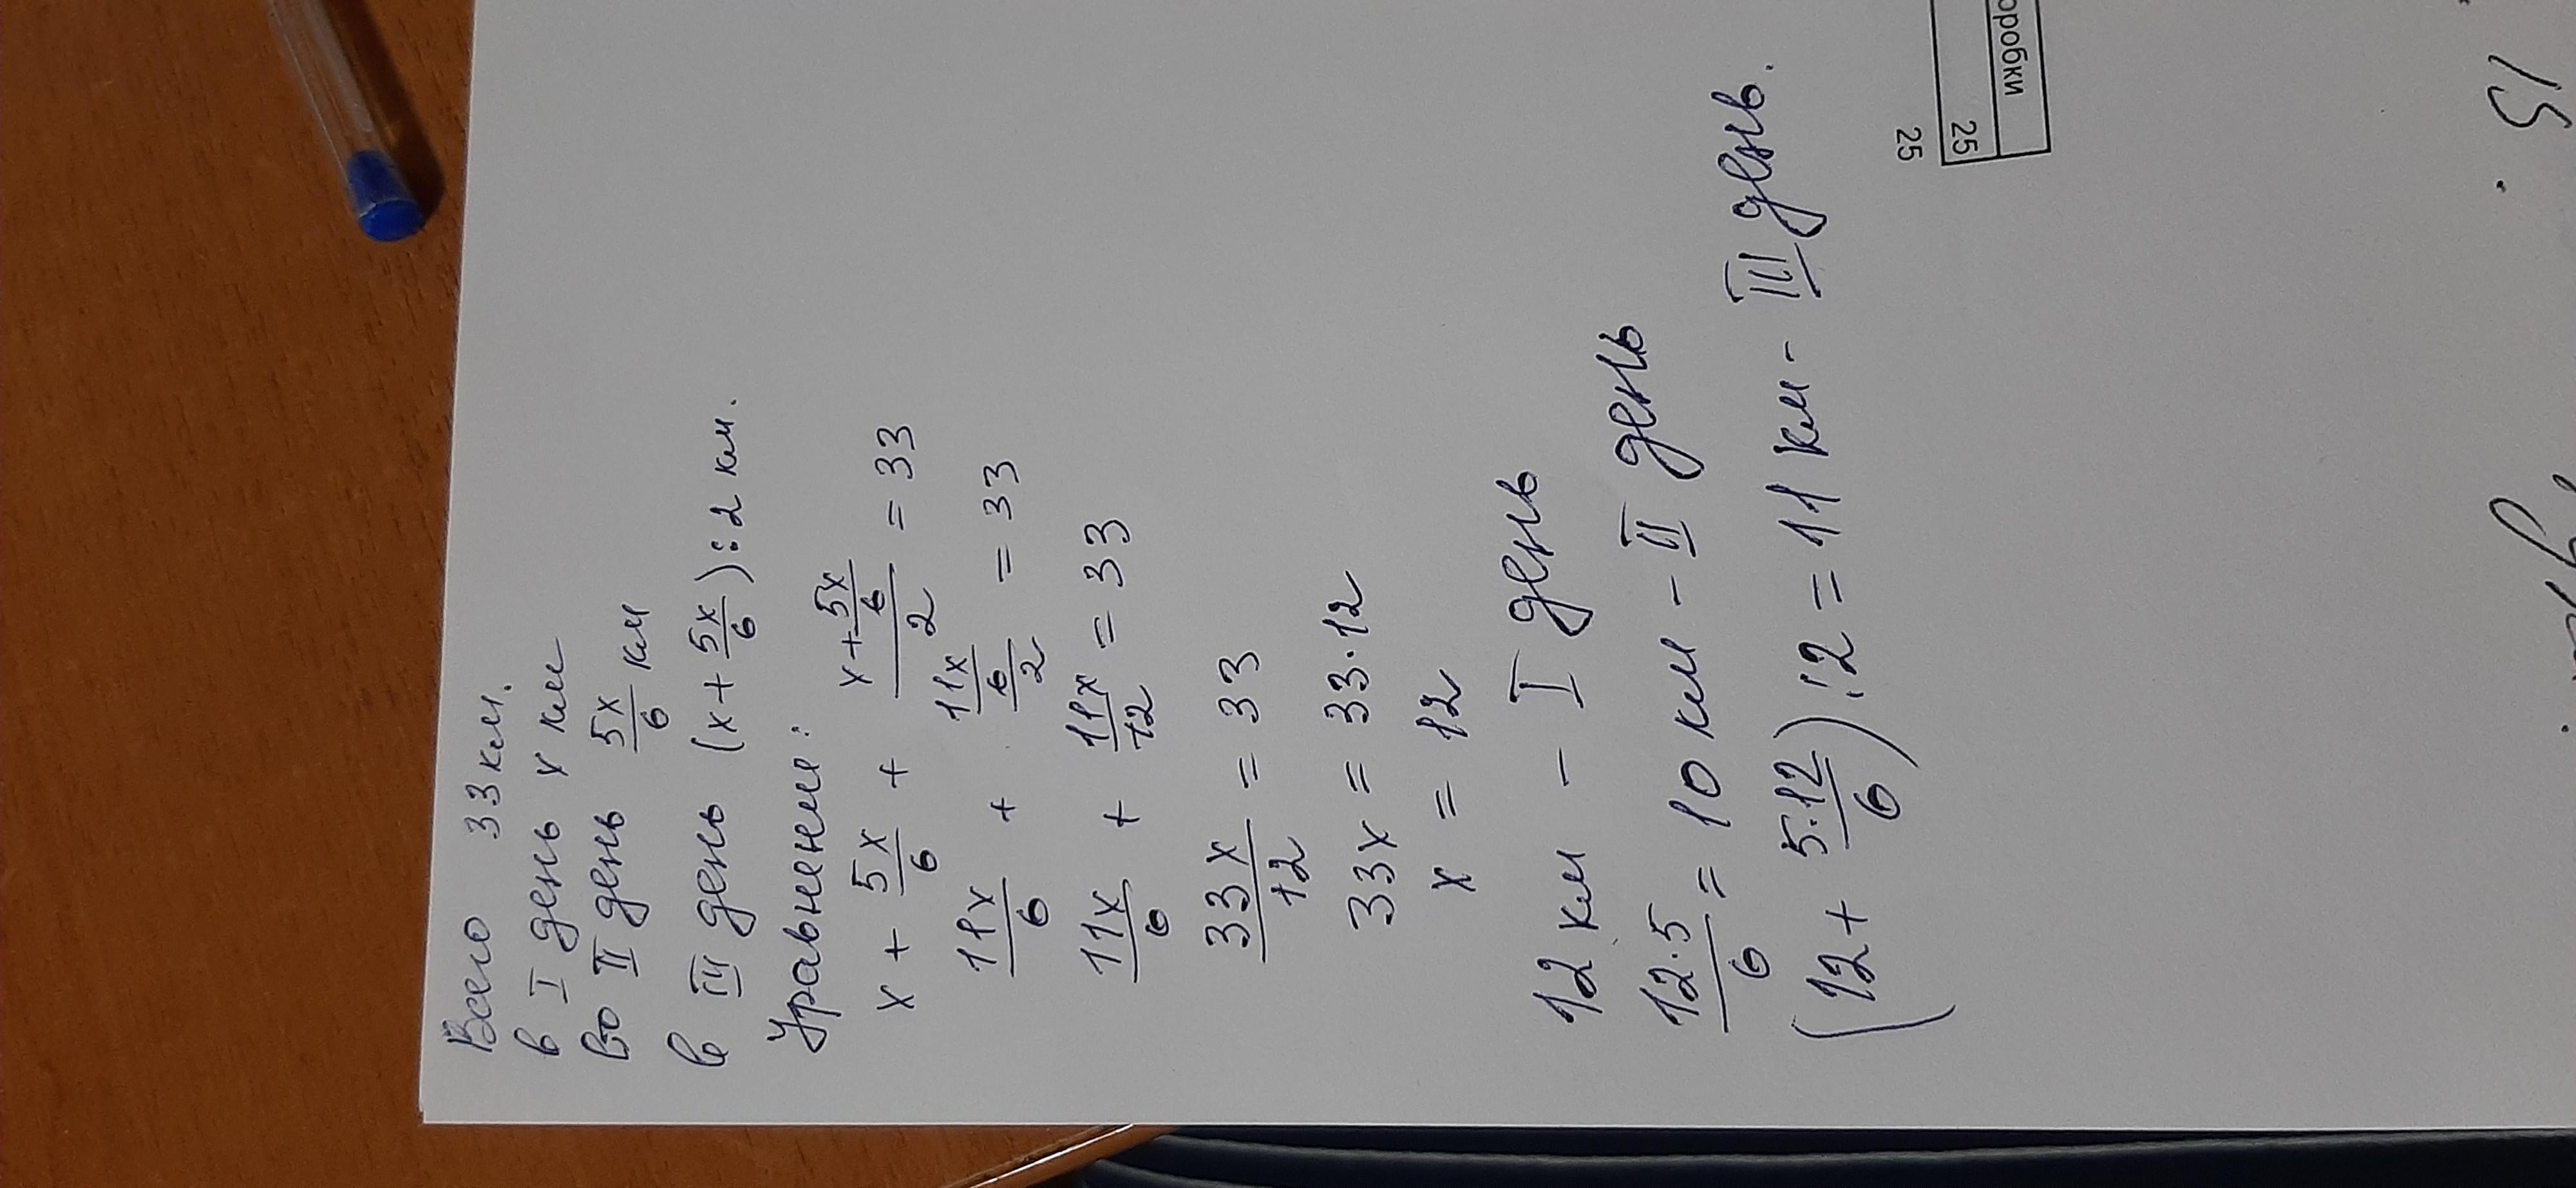 Всего 33 км.
в I день x км
во II день 5x/6 км
в III день (x + 5x/6) : 2 км.
Уравнение:
x + 5x/6 + (x + 5x/6)/2 = 33
11x/6 + (11x/6)/2 = 33
11x/6 + 11x/12 = 33
33x/12 = 33
33x = 33·12
x = 12
12 км – I день
12·5/6 = 10 км – II день
(12 + 5·12/6) : 2 = 11 км – III день.
25
25
15